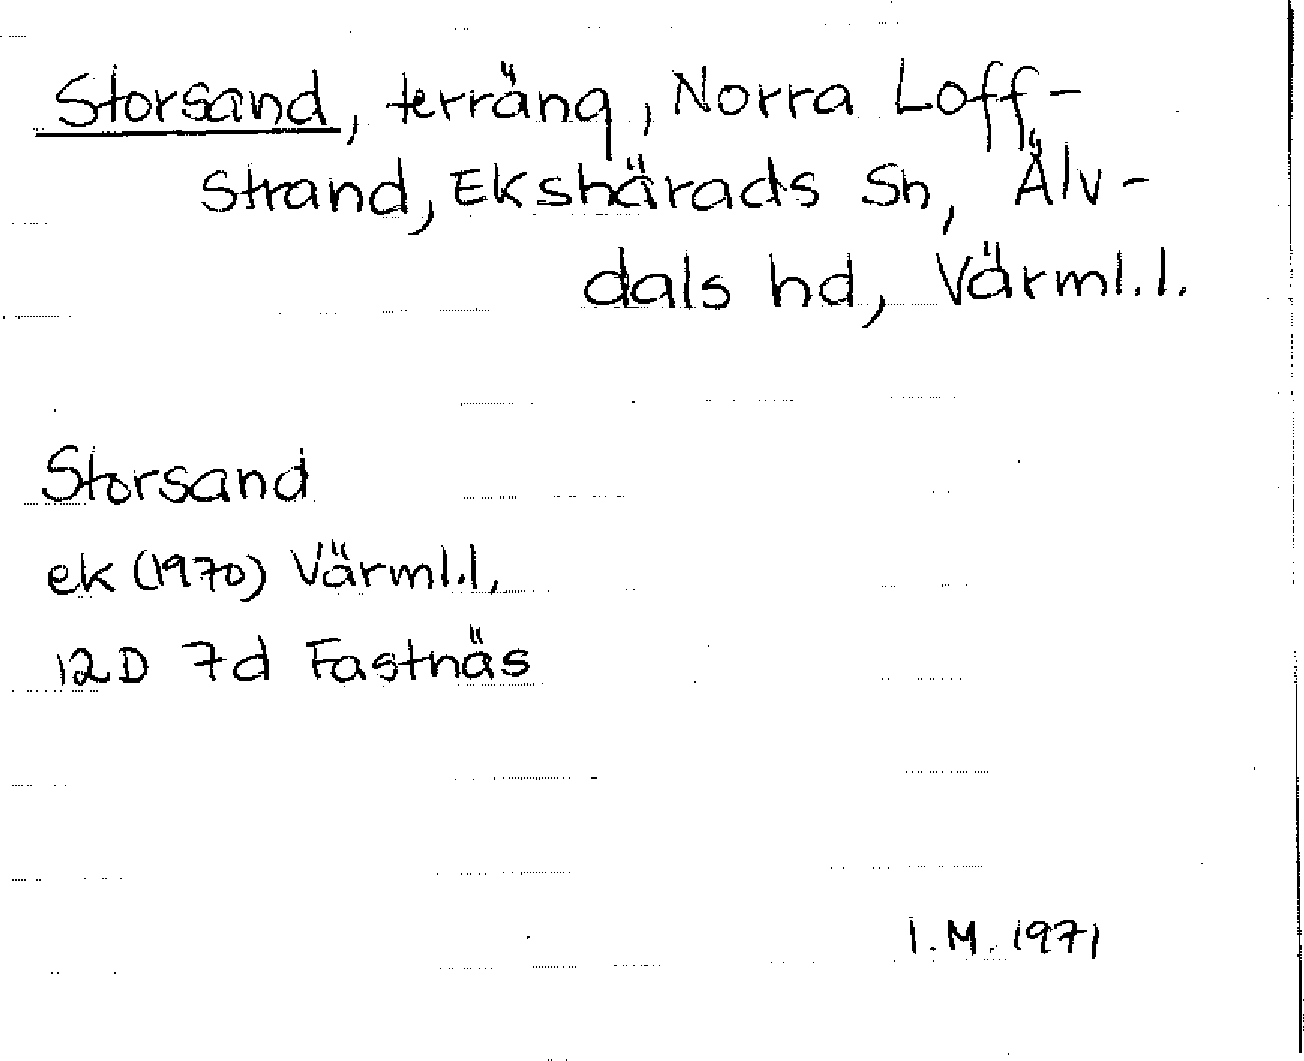 Storsand, terräng, Norra Loff-
strand, Ekshärads Sn, Älv-
dals hd, Värml.l.
Storsand
ek (1970) Värml.l.
12D 7d Fastnäs
I.M. 1971